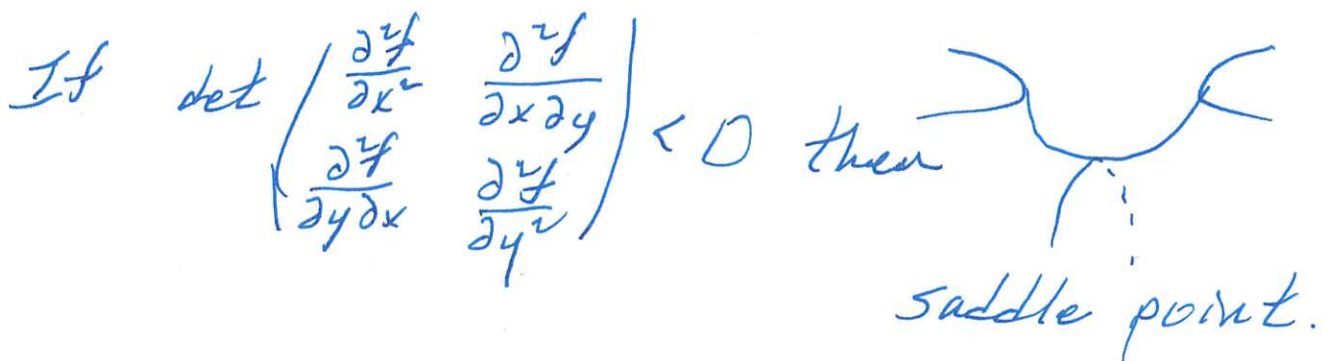 If det \begin{pmatrix} \frac{\partial^2 f}{\partial x^2} & \frac{\partial^2 f}{\partial x \partial y} \\ \frac{\partial^2 f}{\partial y \partial x} & \frac{\partial^2 f}{\partial y^2} \end{pmatrix} < 0 then
saddle point.